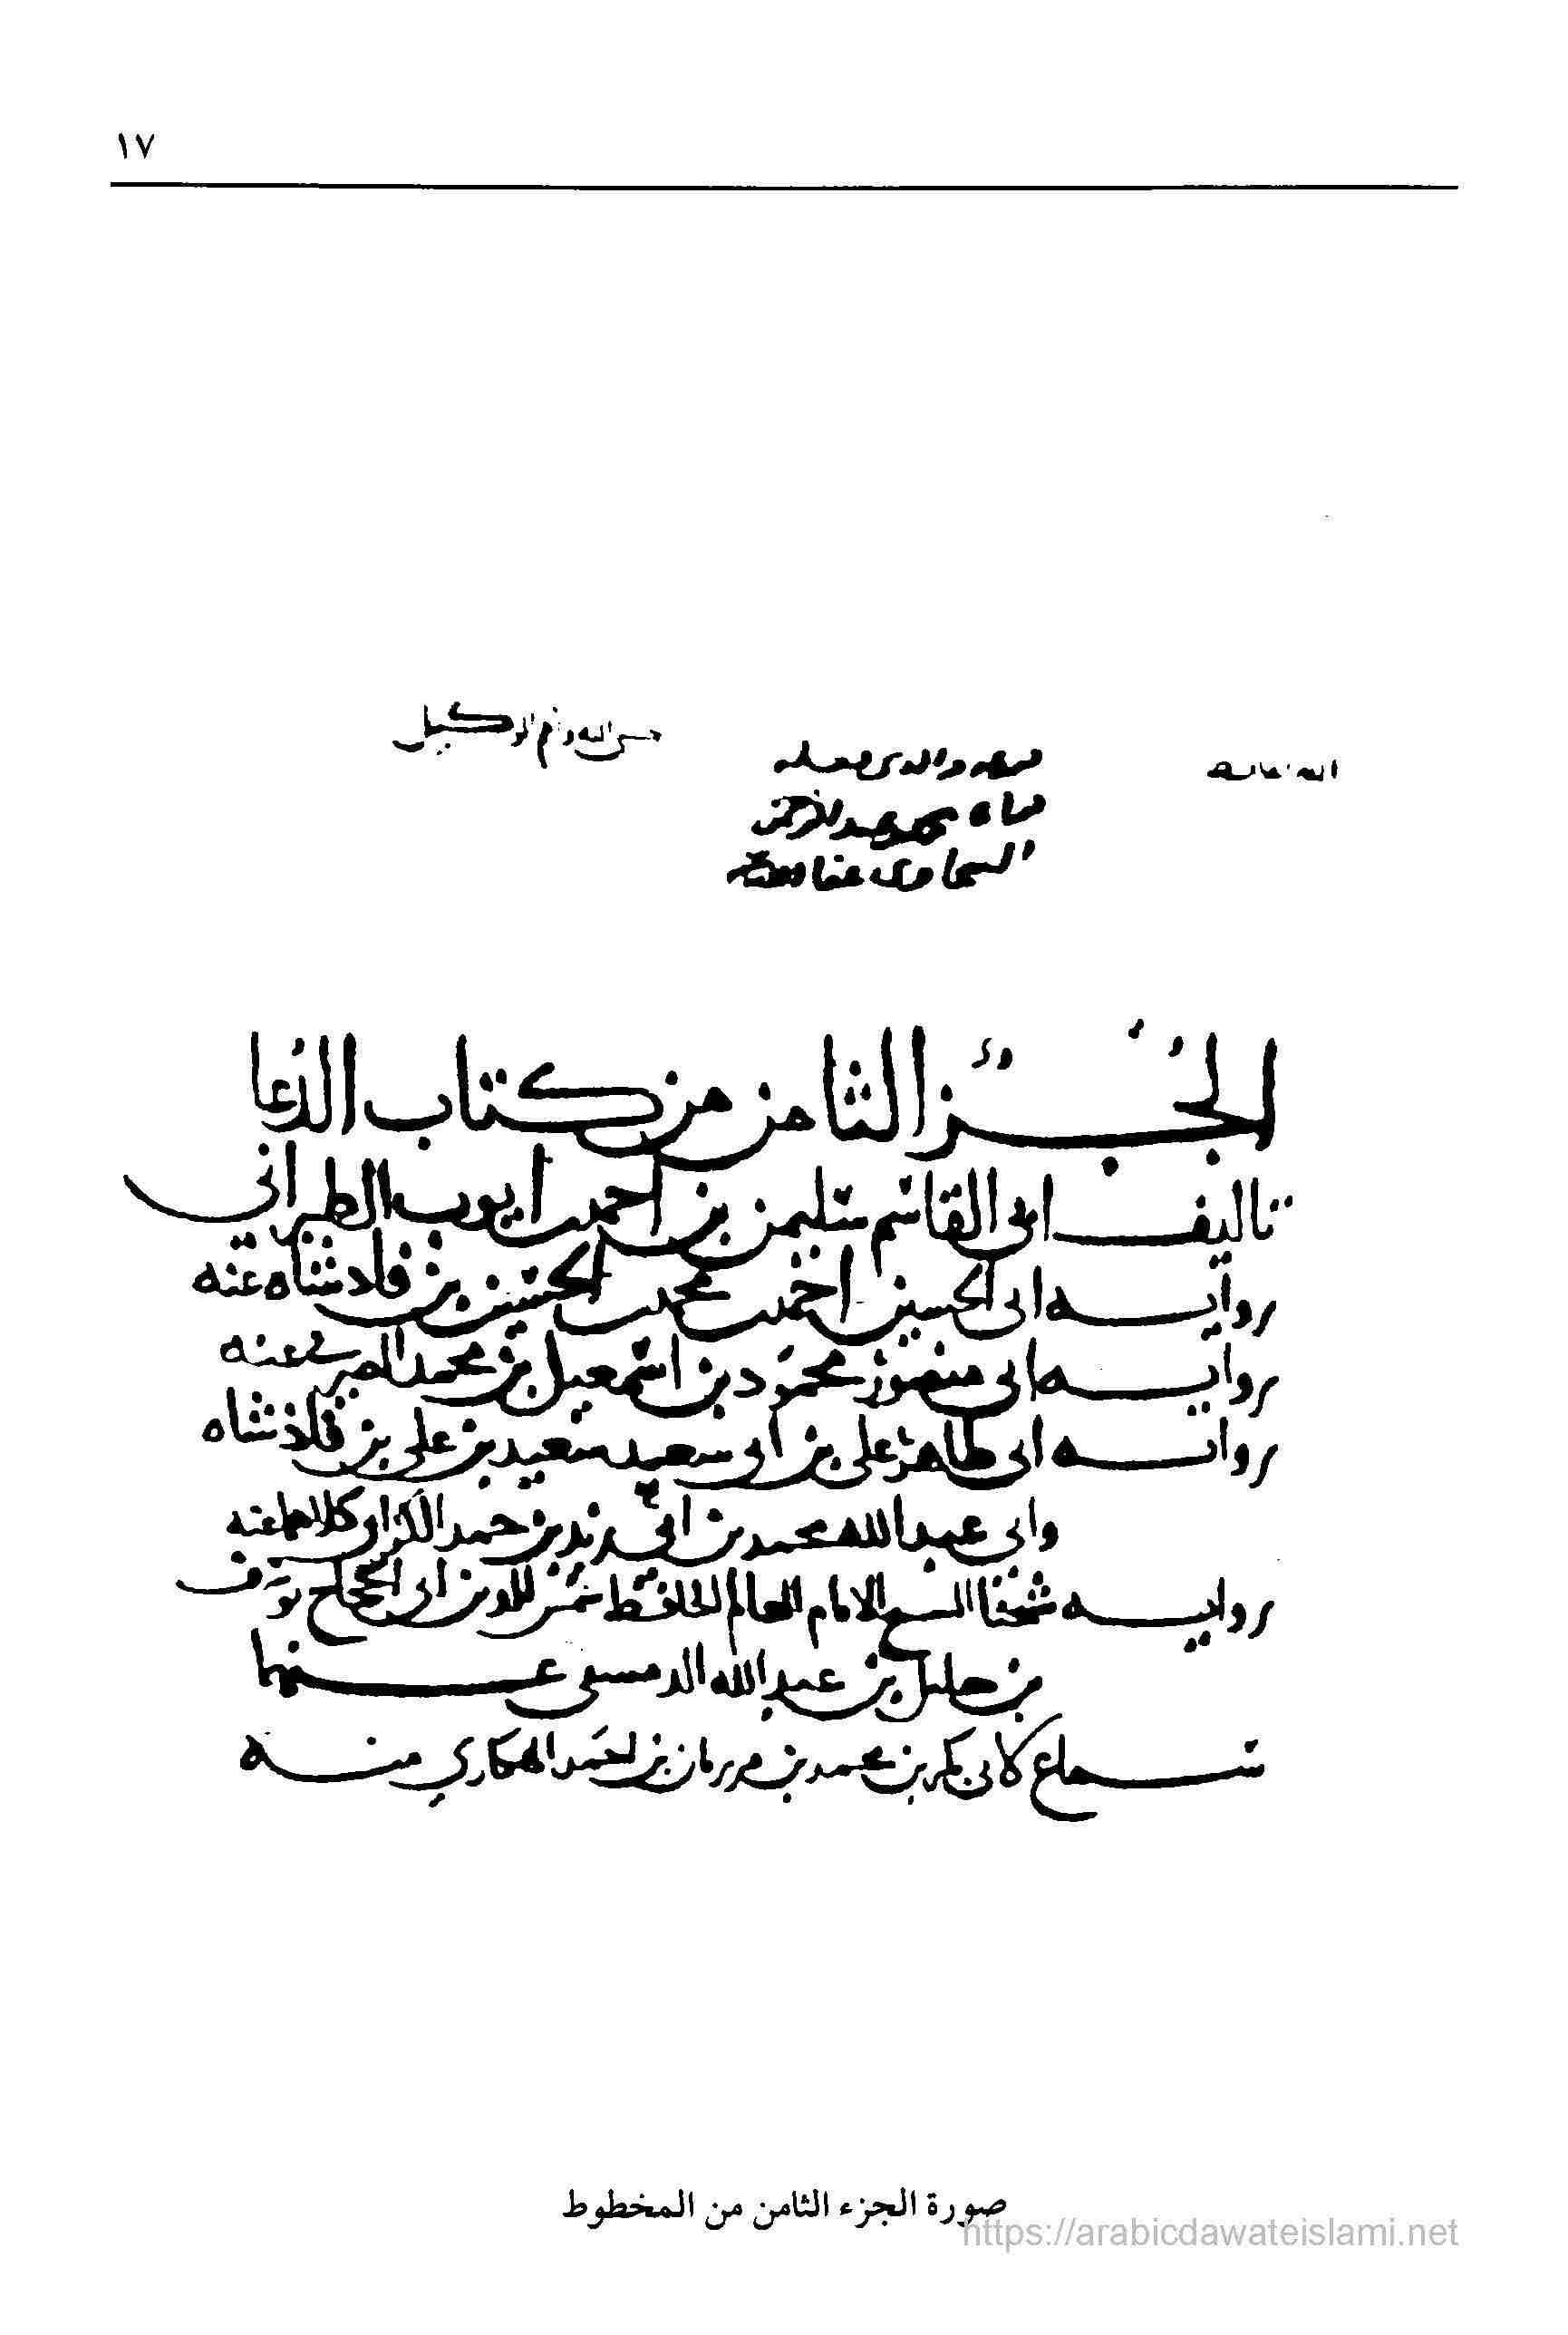 ١٧
حسبي الله ونعم الوكيل
الله
عبد الرحمن
السخاوي عفا الله عنه
الجزؤ الثامن من كتاب الدعا
تاليف ابي القاسم سليمن بن احمد بن ايوب الطبراني
رواية ابي الحسين احمد بن محمد بن الحسين بن فاذشاه عنه
رواية ابي منصور محمود بن اسمعيل بن محمد الصيرفي عنه
رواية ابي طاهر علي بن ابي سعيد سعيد بن علي بن فاذشاه
وابي عبد الله محمد بن ابي زيد بن حمد الكراني كلاهما عنه
رواية شيخنا الشيخ الامام العالم الحافظ شمس الدين ابي الحجاج يوسف
بن خليل بن عبد الله الدمشقي عنهما
سماع لابي بكر بن محمد بن بن احمد الهكاري منه
صورة الجزء الثامن من المخطوط
https://arabicdawateislami.net